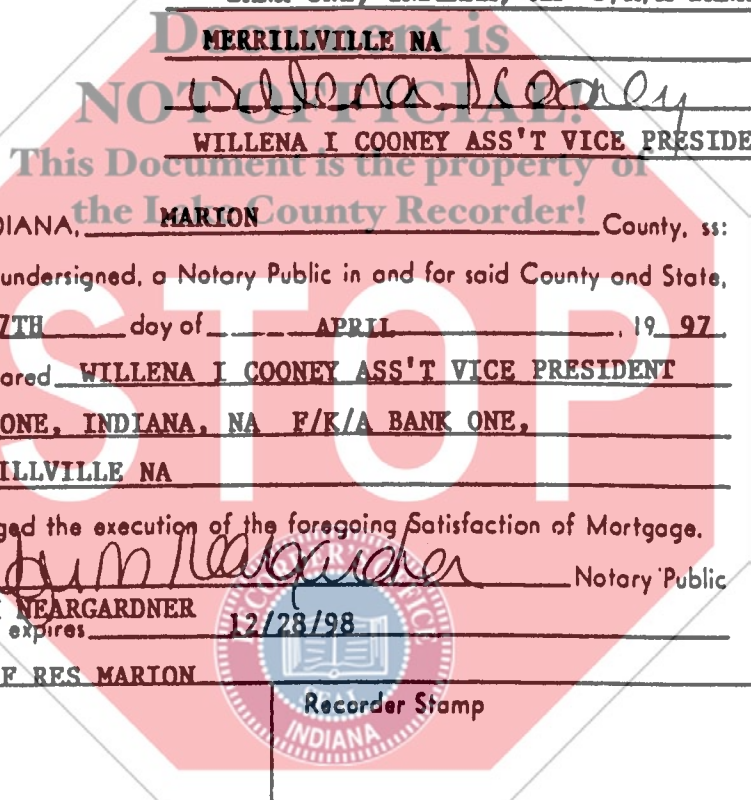 Document is
MERRILLVILLE NA
NOT OFFICIAL!
Willena I Cooney
WILLENA I COONEY ASS'T VICE PRESIDE
This Document is the property of
the Lake County Recorder!
DIANA, MARION County, ss:
undersigned, a Notary Public in and for said County and State,
7TH day of APRIL, 19 97.
ared WILLENA I COONEY ASS'T VICE PRESIDENT
ONE, INDIANA, NA F/K/A BANK ONE,
ILLVILLE NA
STOP
ged the execution of the foregoing Satisfaction of Mortgage.
Neargardner Notary Public
NEARGARDNER
expires 12/28/98
F RES MARION
RECORDER'S OFFICE
SEAL
INDIANA
Recorder Stamp